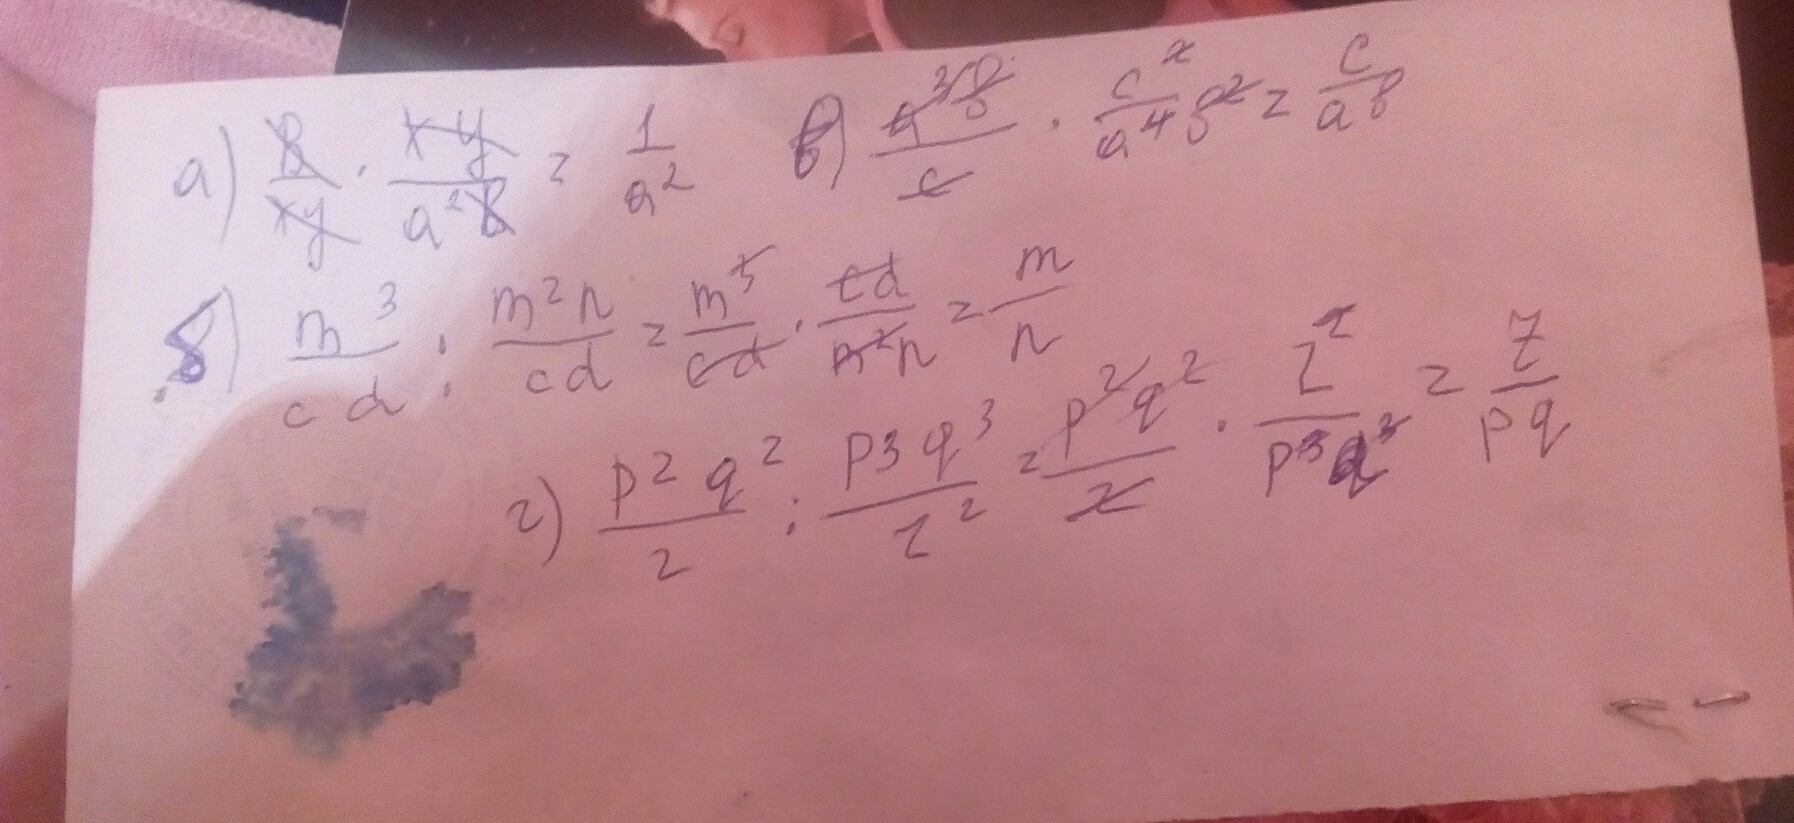 а) в/xy · xy/a²в = 1/a² в) a³b/c · c²/a⁴b² = c/ab
б) m³/cd : m²n/cd = m³/cd · cd/m²n = m/n
г) p²q²/z : p³q³/z² = p²q²/z · z²/p³q³ = z/pq